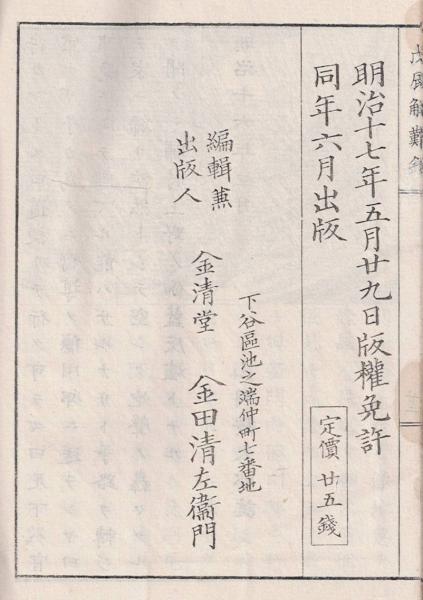 明治十七年五月廿九日版權免許
同年六月出版
定價 廿五錢
編輯兼
出版人
下谷區池之端仲町七番地
金清堂 金田清左衞門